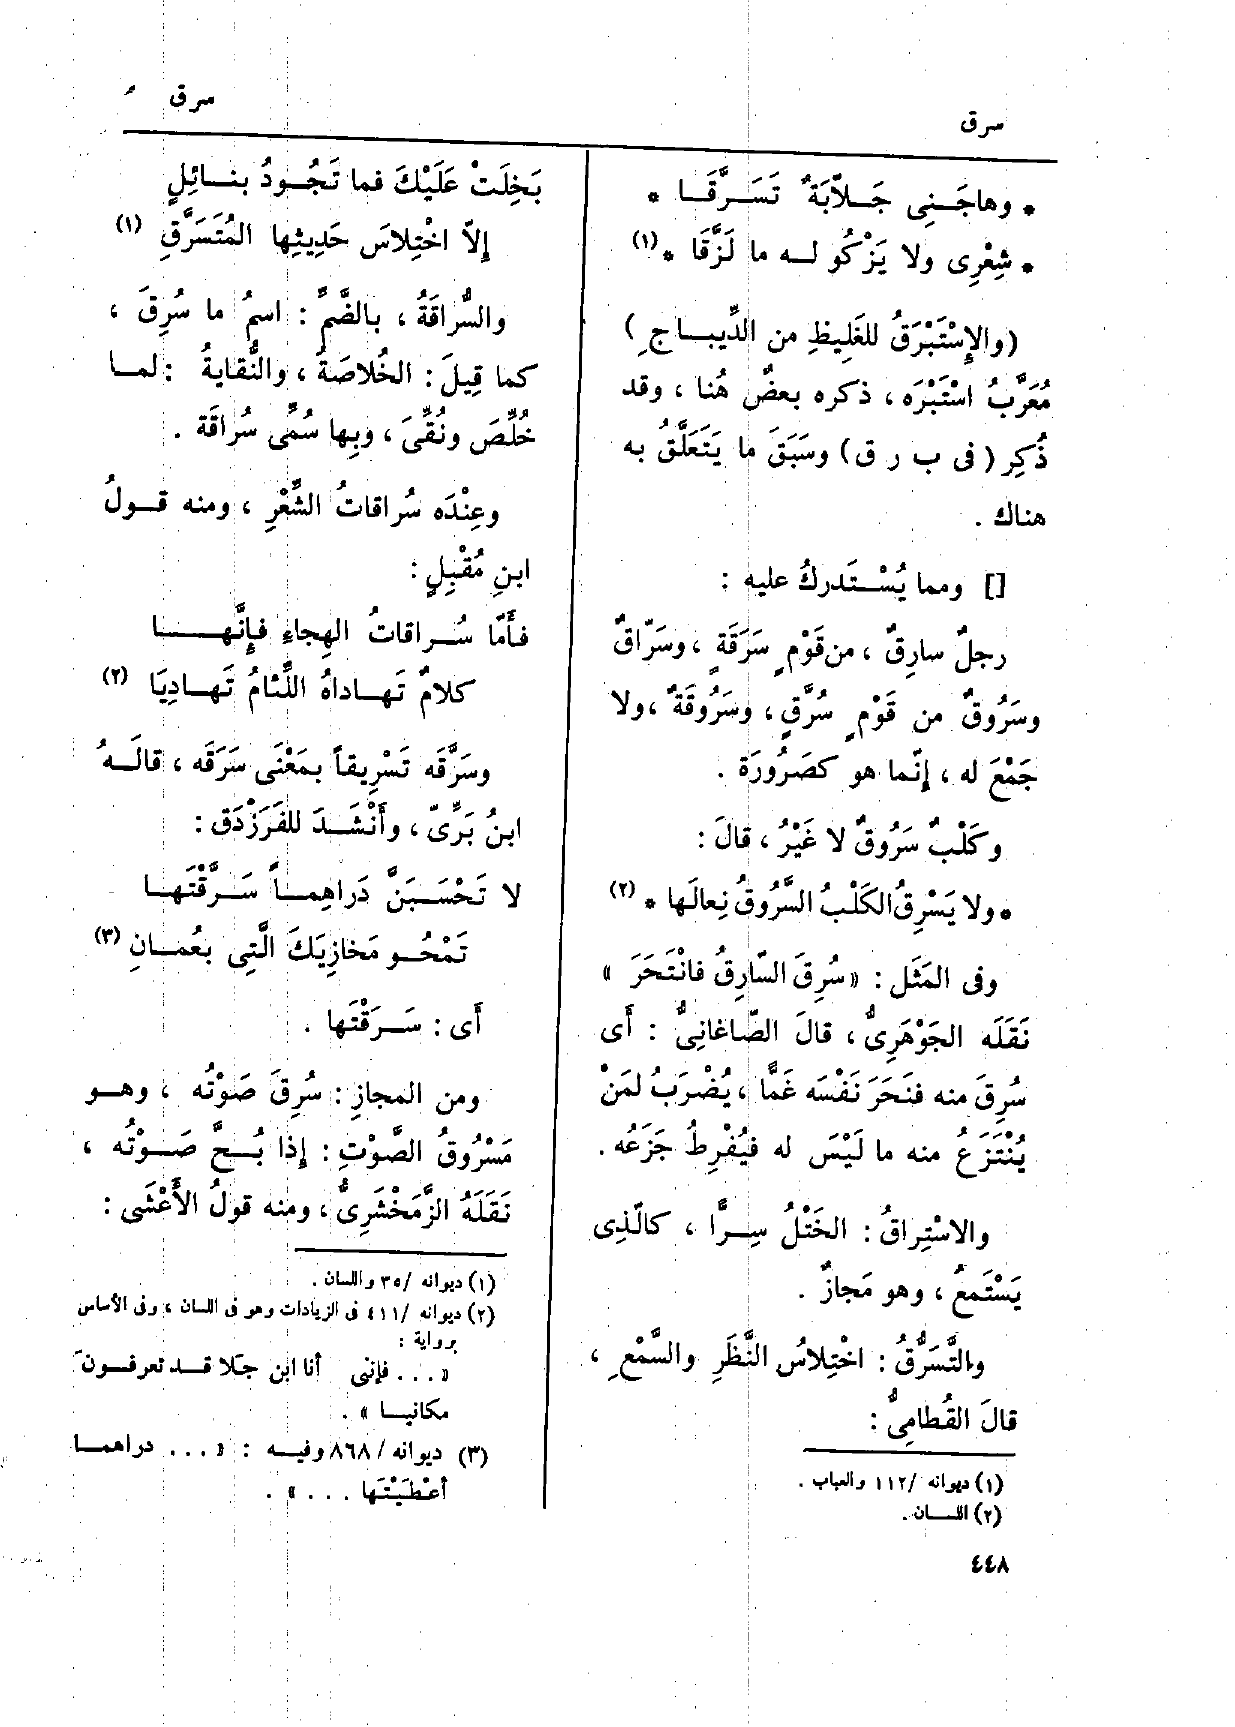 سرق
سرق
* وهاجَنِى جَلاَّبَةٌ تَسَرَّقَا *
* شِعْرِى ولا يَزْكُو له ما لَزَّقَا * (١)
(والإِسْتَبْرَقُ للغَلِيظِ من الدِّيباجِ)
مُعَرَّبُ اسْتَبْرَه ، ذكره بعضٌ هُنا ، وقد
ذُكِر (فى ب ر ق) وسَبَقَ ما يَتَعَلَّقُ به
هناك .
[] ومما يُسْتَدركُ عليه :
رجلٌ سارِقٌ ، من قَوْمٍ سَرَقَةٍ ، وسَرّاقٌ
وسَرُوقٌ من قَوْمٍ سُرَّقٍ ، وسَرُوقَةٌ ، ولا
جَمْعَ له ، إِنّما هو كصَرُورَة .
وكَلْبٌ سَرُوقٌ لا غَيْرُ ، قالَ :
* ولا يَسْرِقُ الكَلْبُ السَّرُوقُ نِعالَها * (٢)
وفى المَثَل : «سُرِقَ السّارِقُ فانْتَحَرَ»
نَقَلَه الجَوْهَرِىُّ ، قالَ الصّاغانِىُّ : أَى
سُرِقَ منه فنَحَرَ نَفْسَه غَمًّا ، يُضْرَبُ لمَنْ
يُنْتَزَعُ منه ما لَيْسَ له فيُفْرِطُ جَزَعُه .
والاسْتِراقُ : الخَتْلُ سِرًّا ، كالّذِى
يَسْتَمِعُ ، وهو مَجازٌ .
والتَّسَرُّقُ : اخْتِلاسُ النَّظَرِ والسَّمْعِ ،
قالَ القُطامِىُّ :
(١) ديوانه /١١٢ والعباب .
(٢) اللسان .
٤٤٨
بَخِلَتْ عَلَيْكَ فما تَجُودُ بنائِلٍ
إِلاّ اخْتِلاسَ حَدِيثِها المُتَسَرَّقِ (١)
والسُّراقَةُ ، بالضَّمِّ : اسمُ ما سُرِقَ ،
كما قِيلَ : الخُلاصَةُ ، والنُّقايةُ : لما
خُلِّصَ ونُقِّىَ ، وبِها سُمِّى سُراقَة .
وعِنْدَه سُراقاتُ الشِّعْرِ ، ومنه قولُ
ابنِ مُقْبِلٍ :
فأَمّا سُراقاتُ الهِجاءِ فإِنَّها
كلامٌ تَهاداهُ اللِّئامُ تَهادِيَا (٢)
وسَرَّقَه تَسْرِيقاً بمَعْنَى سَرَقَه ، قالَهُ
ابنُ بَرِّىّ ، وأَنْشَدَ للفَرَزْدَق :
لا تَحْسَبَنَّ دَراهِماً سَرَّقْتَها
تَمْحُو مَخازِيَكَ الَّتِى بعُمانِ (٣)
أَى : سَرَقْتَها .
ومن المجازِ : سُرِقَ صَوْتُه ، وهو
مَسْرُوقُ الصَّوْتِ : إِذا بُحَّ صَوْتُه ،
نَقَلَهُ الزَّمَخْشَرِىُّ ، ومنه قولُ الأَعْشَى :
(١) ديوانه /٣٥ واللسان .
(٢) ديوانه /٤١١ فى الزيادات وهو فى اللسان ، وفى الأساس
برواية :
« . . . فإنى أنا ابن جَلا قد تعرفون
مكانيا » .
(٣) ديوانه /٨٦٨ وفيه : « . . . دراهما
أعْطَيْتَها . . . » .